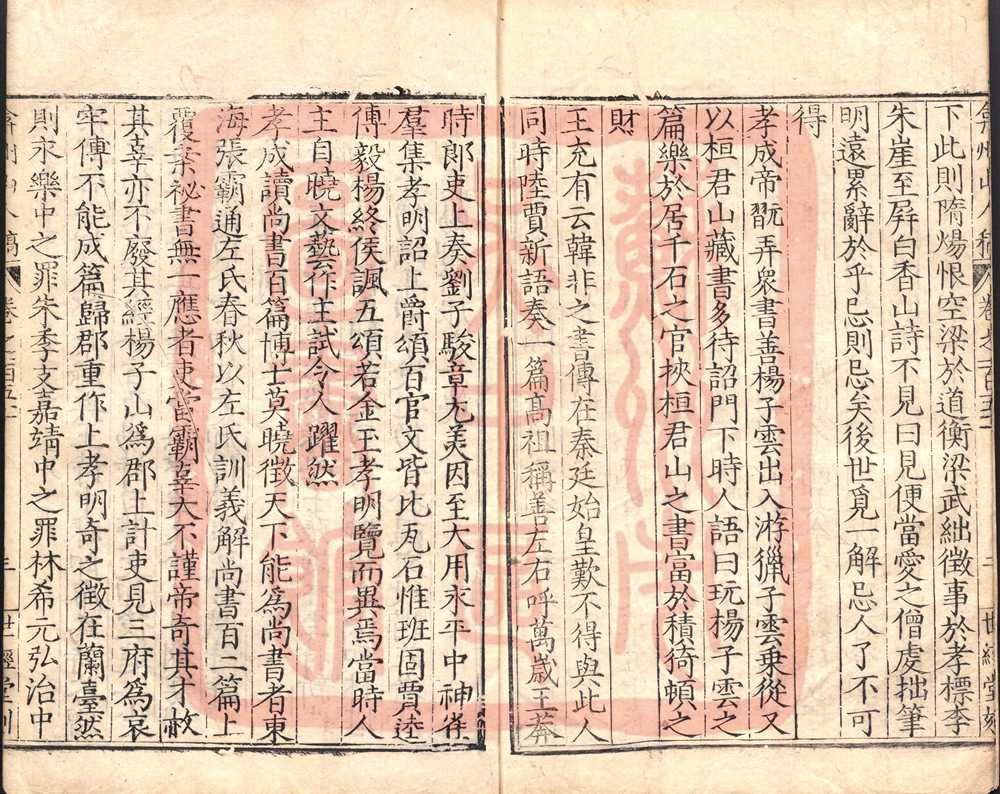 弇州山人稿 卷之一百五十一 二 世經堂刻
下此則隋煬恨空梁於道衡梁武絀徵事於孝標李
朱崖至屏白香山詩不見曰見便當愛之僧虔拙筆
明遠累辭於乎忌則忌矣後世覓一解忌人了不可
得
孝成帝翫弄衆書善楊子雲出入游獵子雲乗從又
以桓君山藏書多待詔門下時人語曰玩楊子雲之
篇樂於居千石之官挾桓君山之書富於積猗頓之
財
王充有云韓非之書傳在秦廷始皇歎不得與此人
同時陸賈新語奏一篇髙祖稱善左右呼萬歳王莽
時郎吏上奏劉子駿章尤美因至大用永平中神雀
羣集孝明詔上爵頌百官文皆比瓦石惟班固賈逵
傅毅楊終侯諷五頌若金玉孝明覽而異焉當時人
主自曉文藝作主試令人躍然
孝成讀尚書百篇博士莫曉徴天下能爲尚書者東
海張霸通左氏春秋以左氏訓義解尚書百二篇上
覆案祕書無一應者吏當霸辜大不謹帝奇其才赦
其辜亦不廢其經楊子山爲郡上計吏見三府爲哀
牢傳不能成篇歸郡重作上孝明奇之徴在蘭臺然
則永樂中之罪朱季支嘉靖中之罪林希元弘治中
弇州山人稿 卷之一百五十一 三 世經堂刻